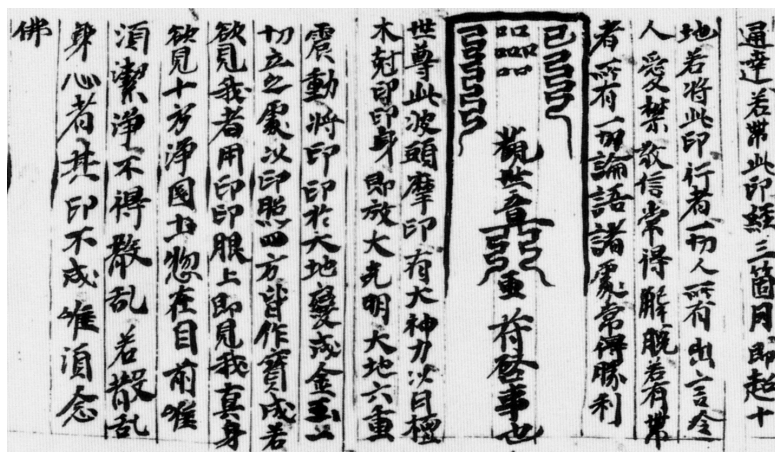 通達若帶此印經三箇月即超十
地若將此印行者一切人所有出言令
人愛樂敬信常得解脫若有帶
者所有一切論語諸處常得勝利
觀世音 符啓事也
世尊此波頭摩印有大神力以白檀
木尅印印身即放大光明大地六重
震動將印印於大地變成金玉以
切立之處以印照四方皆作寶成若
欲見我者用印印眼上即見我真身
欲見十方淨國土惣在目前唯
須潔淨不得散乱若散乱
身心者其印不成唯須念
佛